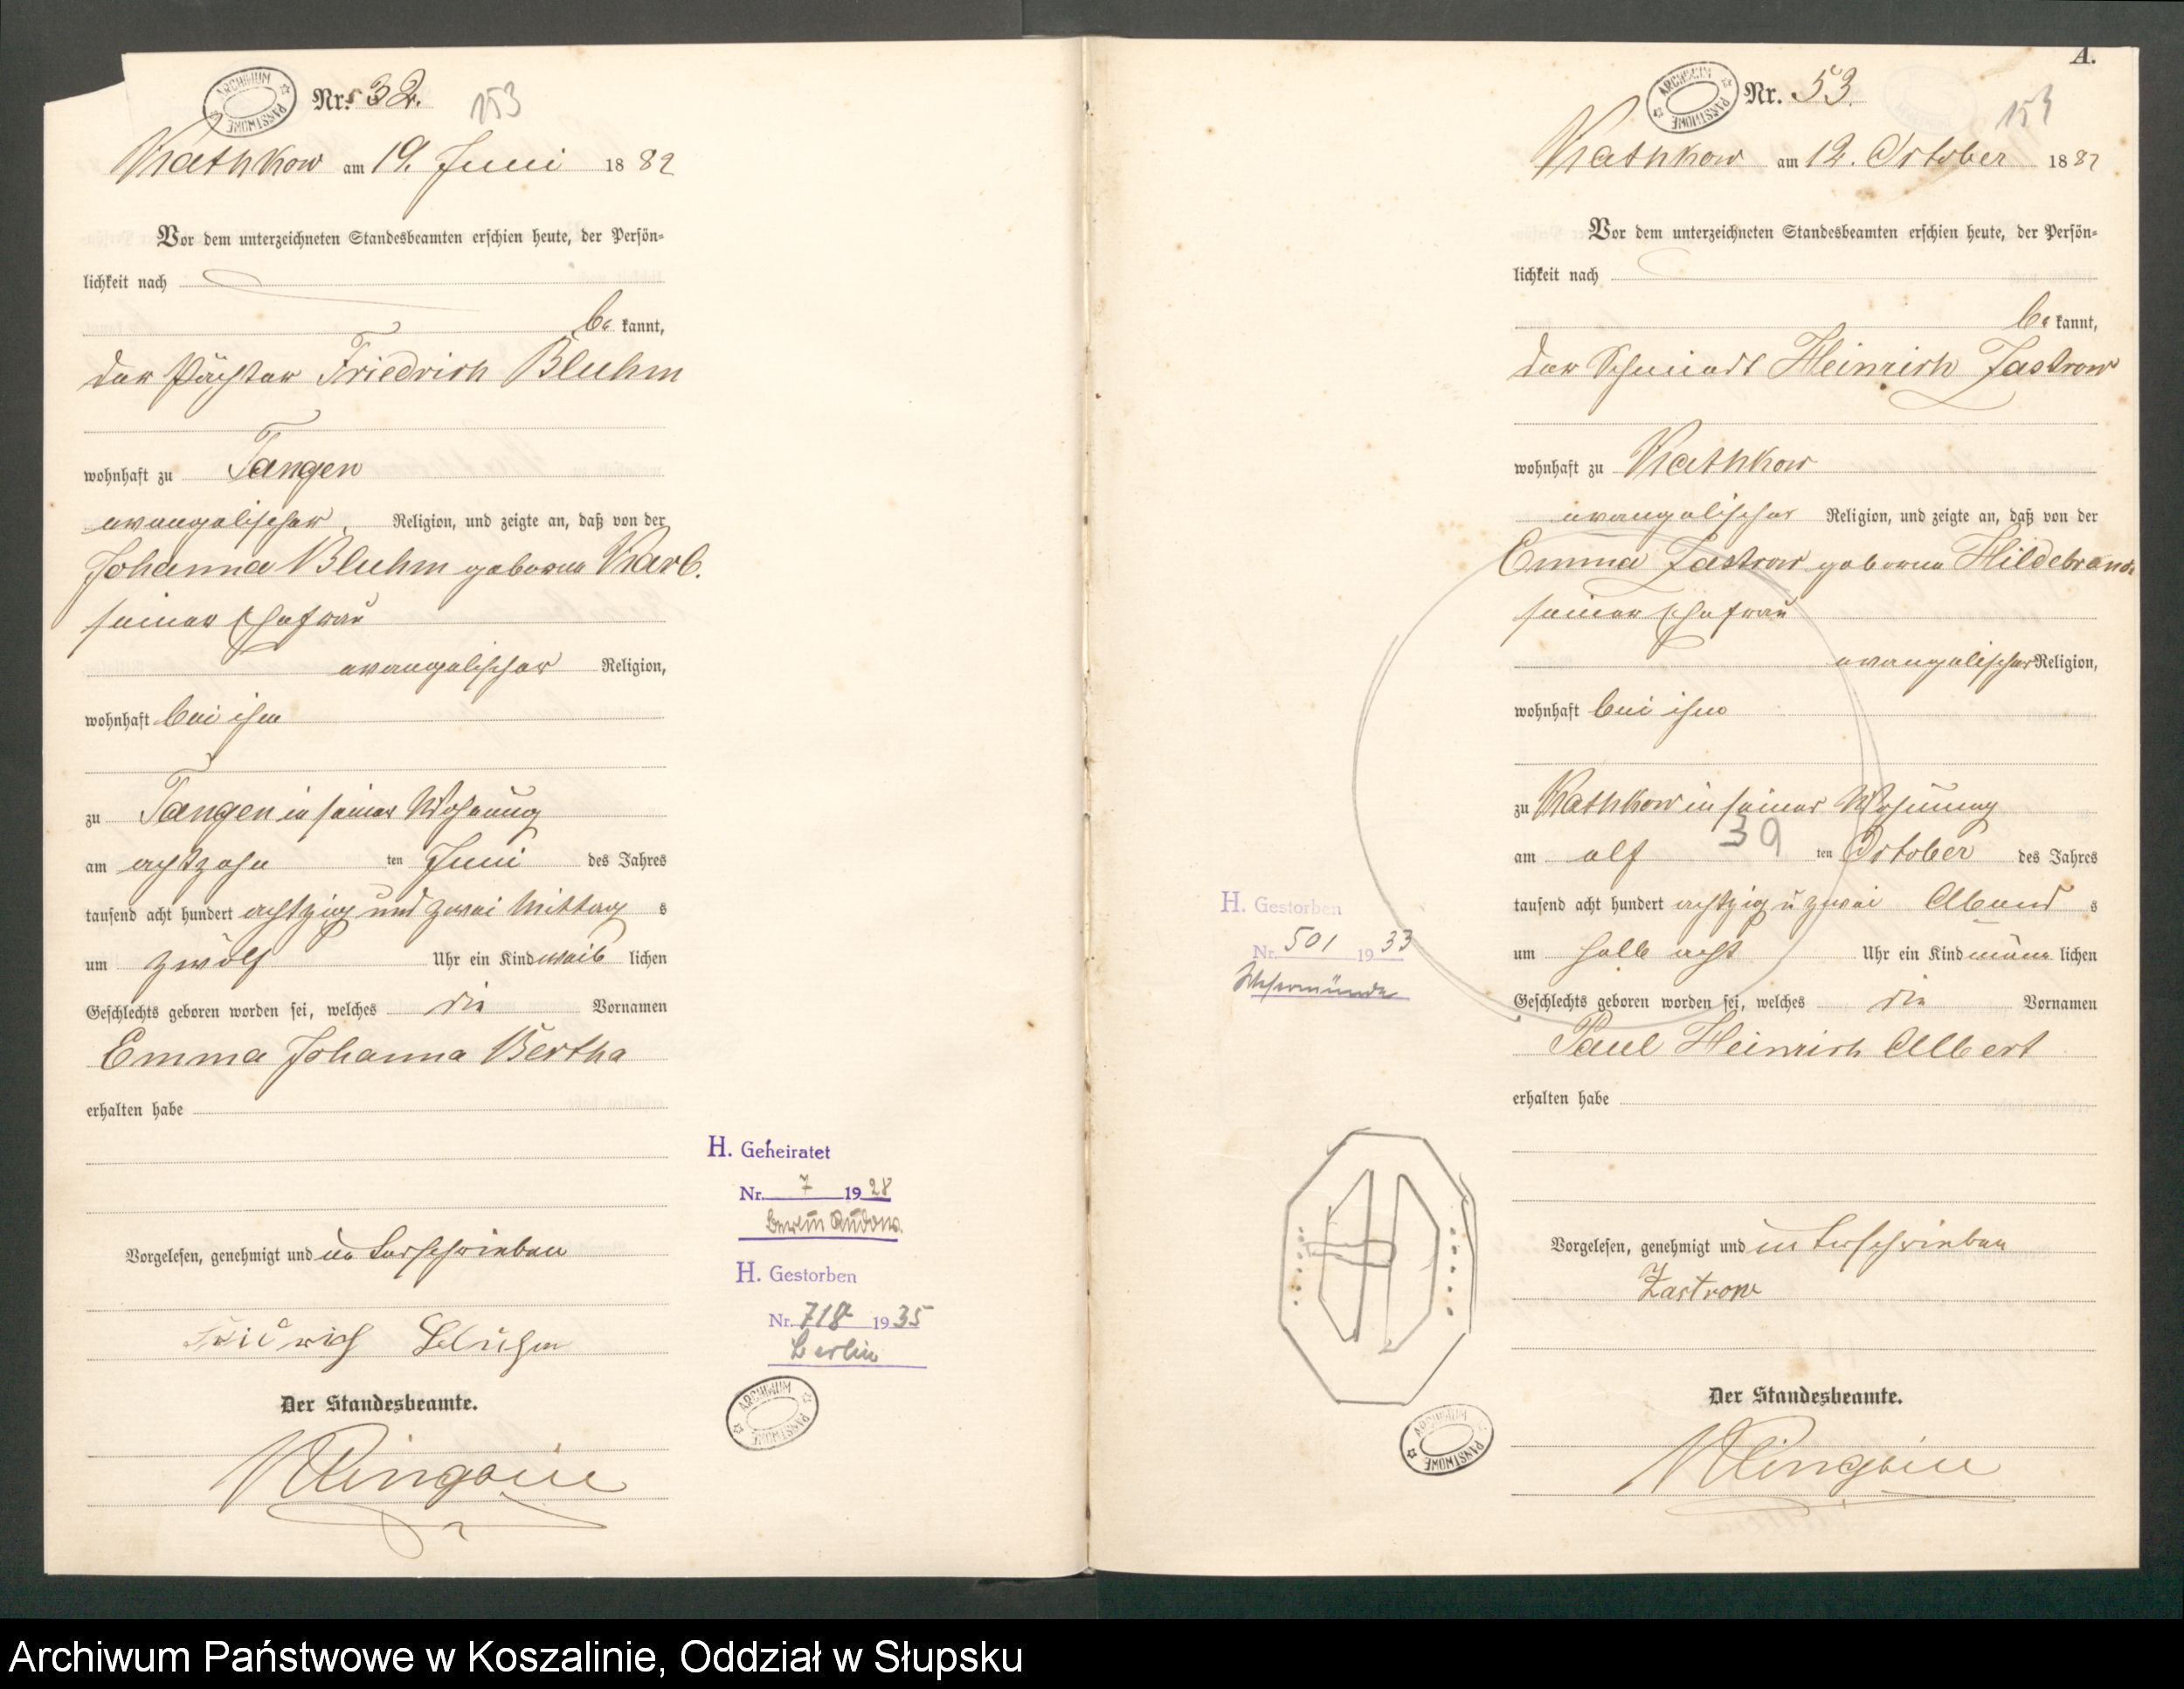 Nr. 32.
153
Kathkow am 19. Juni 1882
Vor dem unterzeichneten Standesbeamten erschien heute, der Persön-
lichkeit nach
be kannt,
der Pächter Friedrich Bluhm
wohnhaft zu Tangen
evangelischer Religion, und zeigte an, daß von der
Johanna Bluhm geborene Karb.
seiner Ehefrau
evangelischer Religion,
wohnhaft bei ihm
zu Tangen in seiner Wohnung
am achtzehn ten Juni des Jahres
tausend acht hundert achtzig und zwei Mittag s
um zwölf Uhr ein Kind weib lichen
Geschlechts geboren worden sei, welches die Vornamen
Emma Johanna Bertha
erhalten habe
Vorgelesen, genehmigt und unterschrieben
Friedrich Bluhm
Der Standesbeamte.
H. Geheiratet
Nr. 7 1928
Berlin
H. Gestorben
Nr. 718 1935
Berlin
ARCHIWUM PAŃSTWOWE
A.
Nr. 53.
Kathkow am 12. October 1882
Vor dem unterzeichneten Standesbeamten erschien heute, der Persön-
lichkeit nach
be kannt,
der Schmiedt Heinrich Zastrow
wohnhaft zu Kathkow
evangelischer Religion, und zeigte an, daß von der
Emma Zastrow geborene Hildebrandt
seiner Ehefrau
evangelischer Religion,
wohnhaft bei ihm
zu Kathkow in seiner Wohnung
39
am elf ten October des Jahres
tausend acht hundert achtzig u zwei Abend s
um halb acht Uhr ein Kind männ lichen
Geschlechts geboren worden sei, welches die Vornamen
Paul Heinrich Albert
erhalten habe
Vorgelesen, genehmigt und unterschrieben
Zastrow
Der Standesbeamte.
H. Gestorben
Nr. 501 1933
Wesermünde
ARCHIWUM PAŃSTWOWE
Archiwum Państwowe w Koszalinie, Oddział w Słupsku